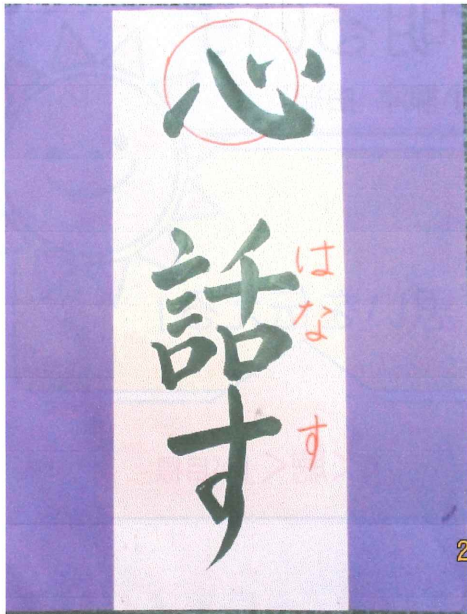 心
話す
はなす
2